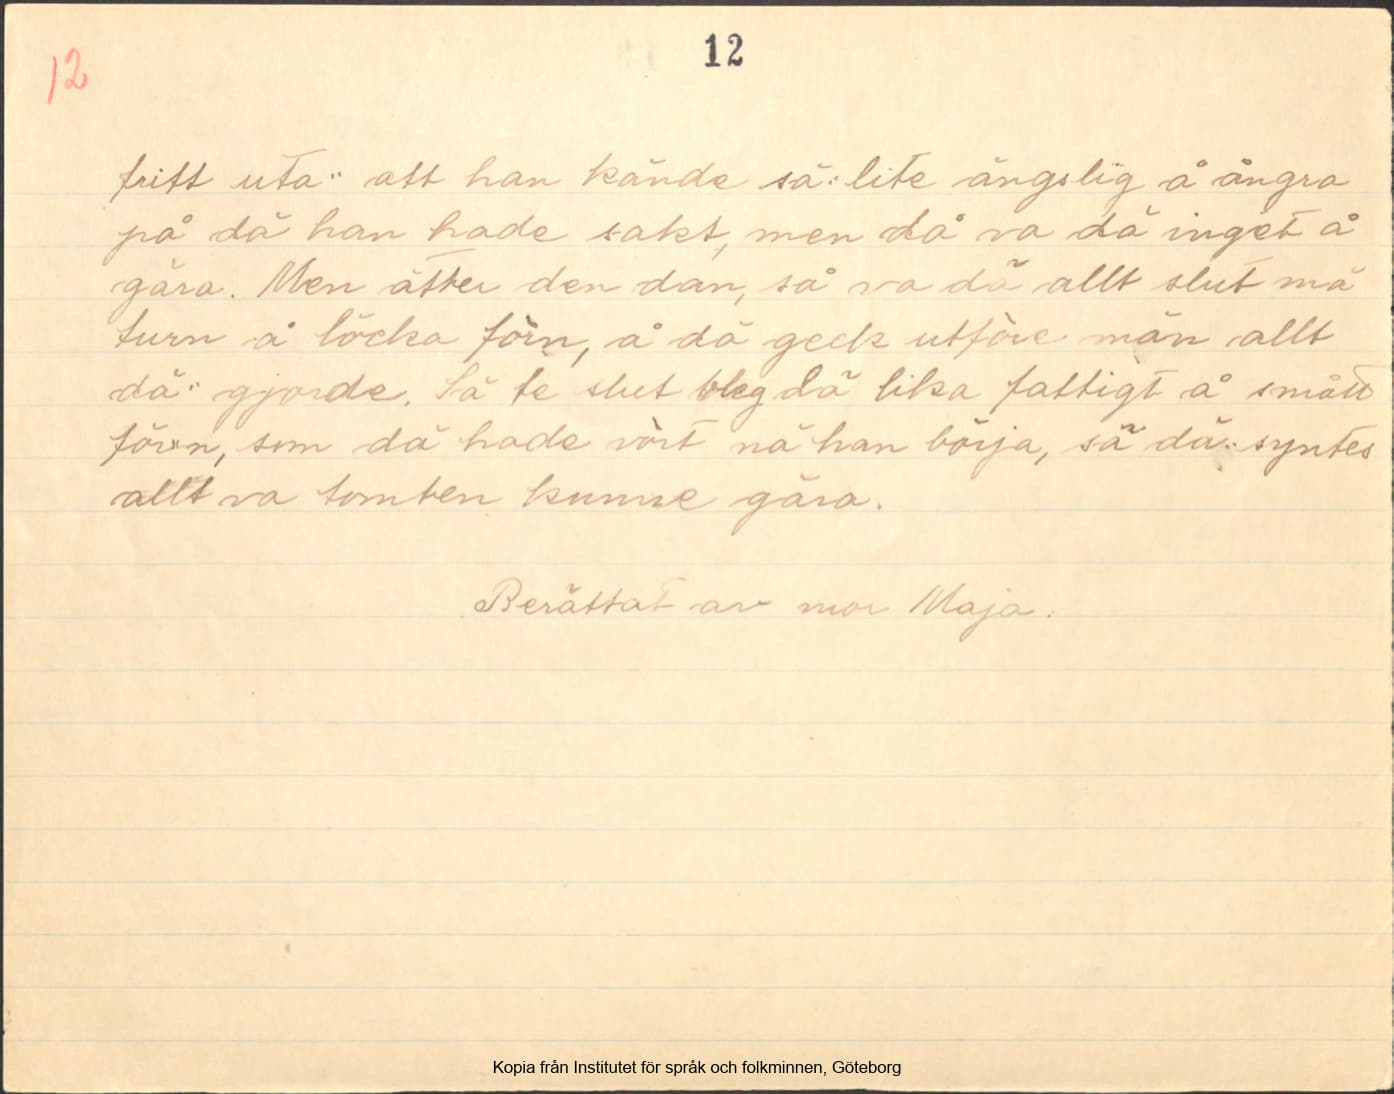 12
12
fritt uta" att han kände sä: lite ängslig å ångra
på dä han hade sakt, men då va dä inget å
gära. Men ätter den dan, så va dä allt slut mä
turn å löcka förn, å dä geck utföre män allt
dä" gjorde. Så te slut bleg dä lika fattigt å smått
förn, som dä hade vört nä han börja, så dä: syntes
allt va tomten kunne gära.
Berättat av mor Maja.
Kopia från Institutet för språk och folkminnen, Göteborg